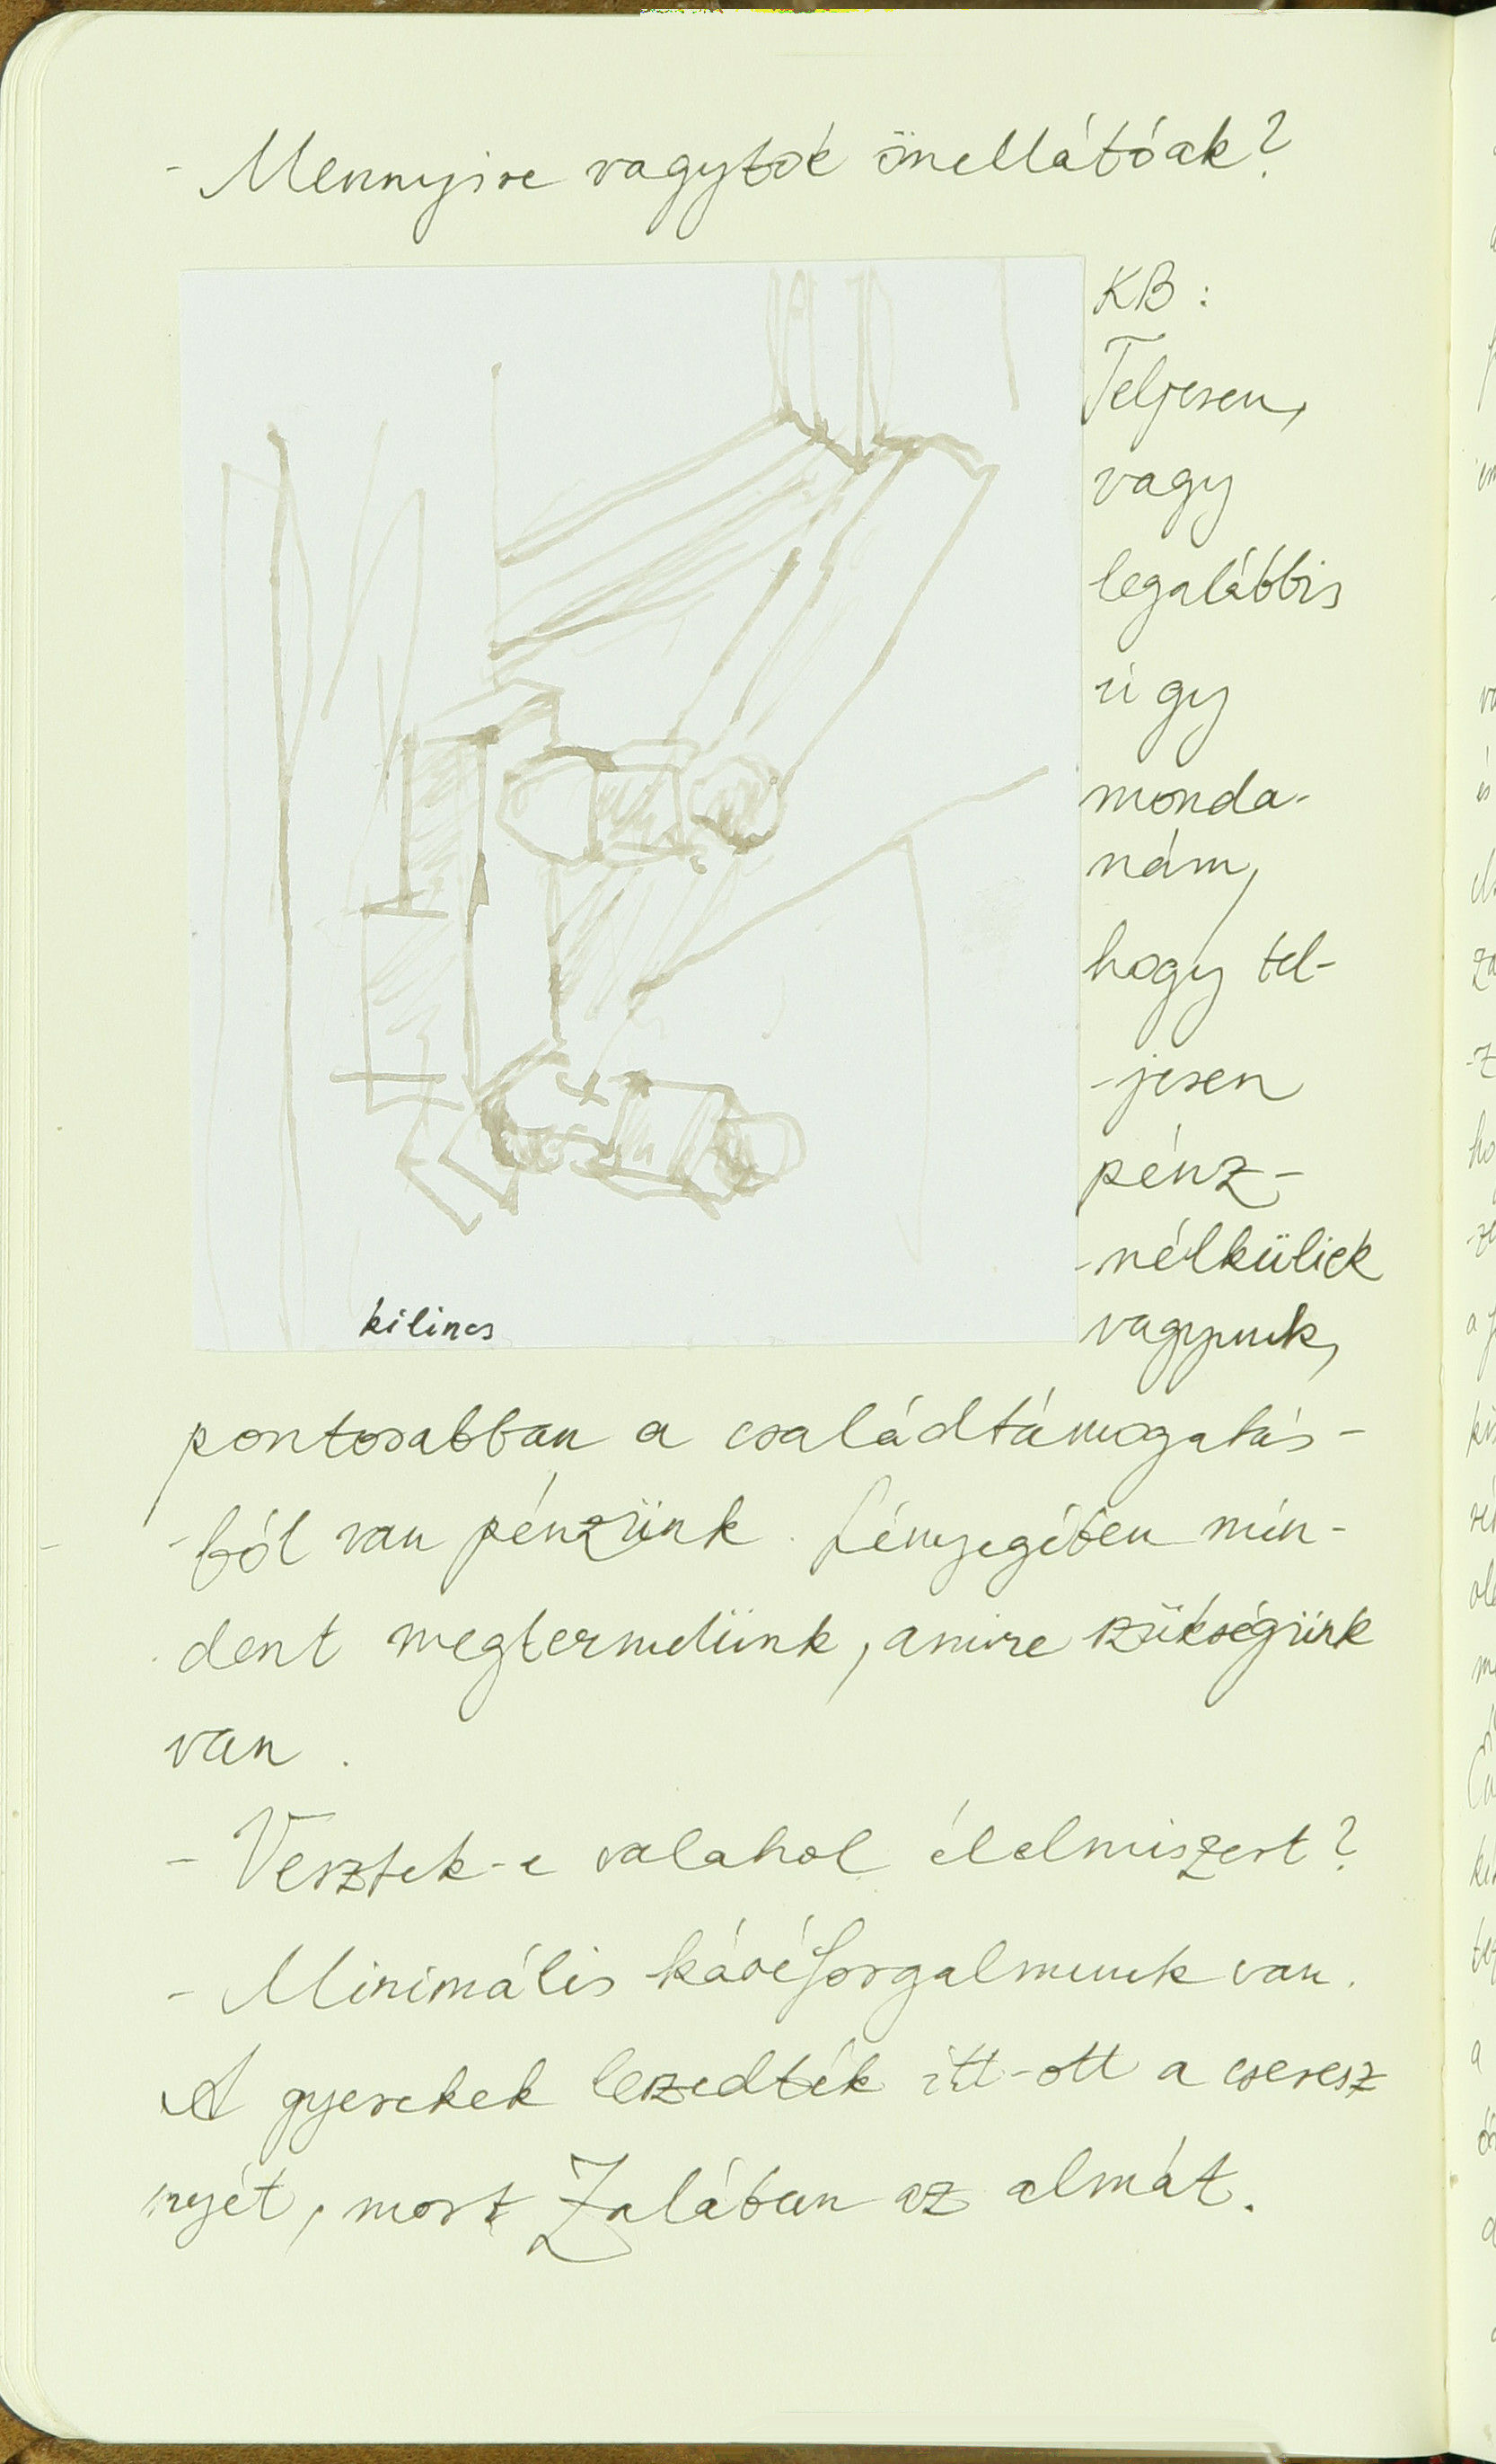 - Mennyire vagytok önellátóak?
KB:
Teljesen,
vagy
legalábbis
úgy
monda-
nám,
hogy tel-
-jesen
pénz-
-nélküliek
vagyunk,
kilincs
pontosabban a családtámogatás-
-ból van pénzünk. Lényegében min-
dent megtermelünk, amire szükségünk
van.
- Vesztek-e valahol élelmiszert?
- Minimális kávéforgalmunk van.
A gyerekek leszedték itt-ott a cseresz
nyét, most Zalában az almát.